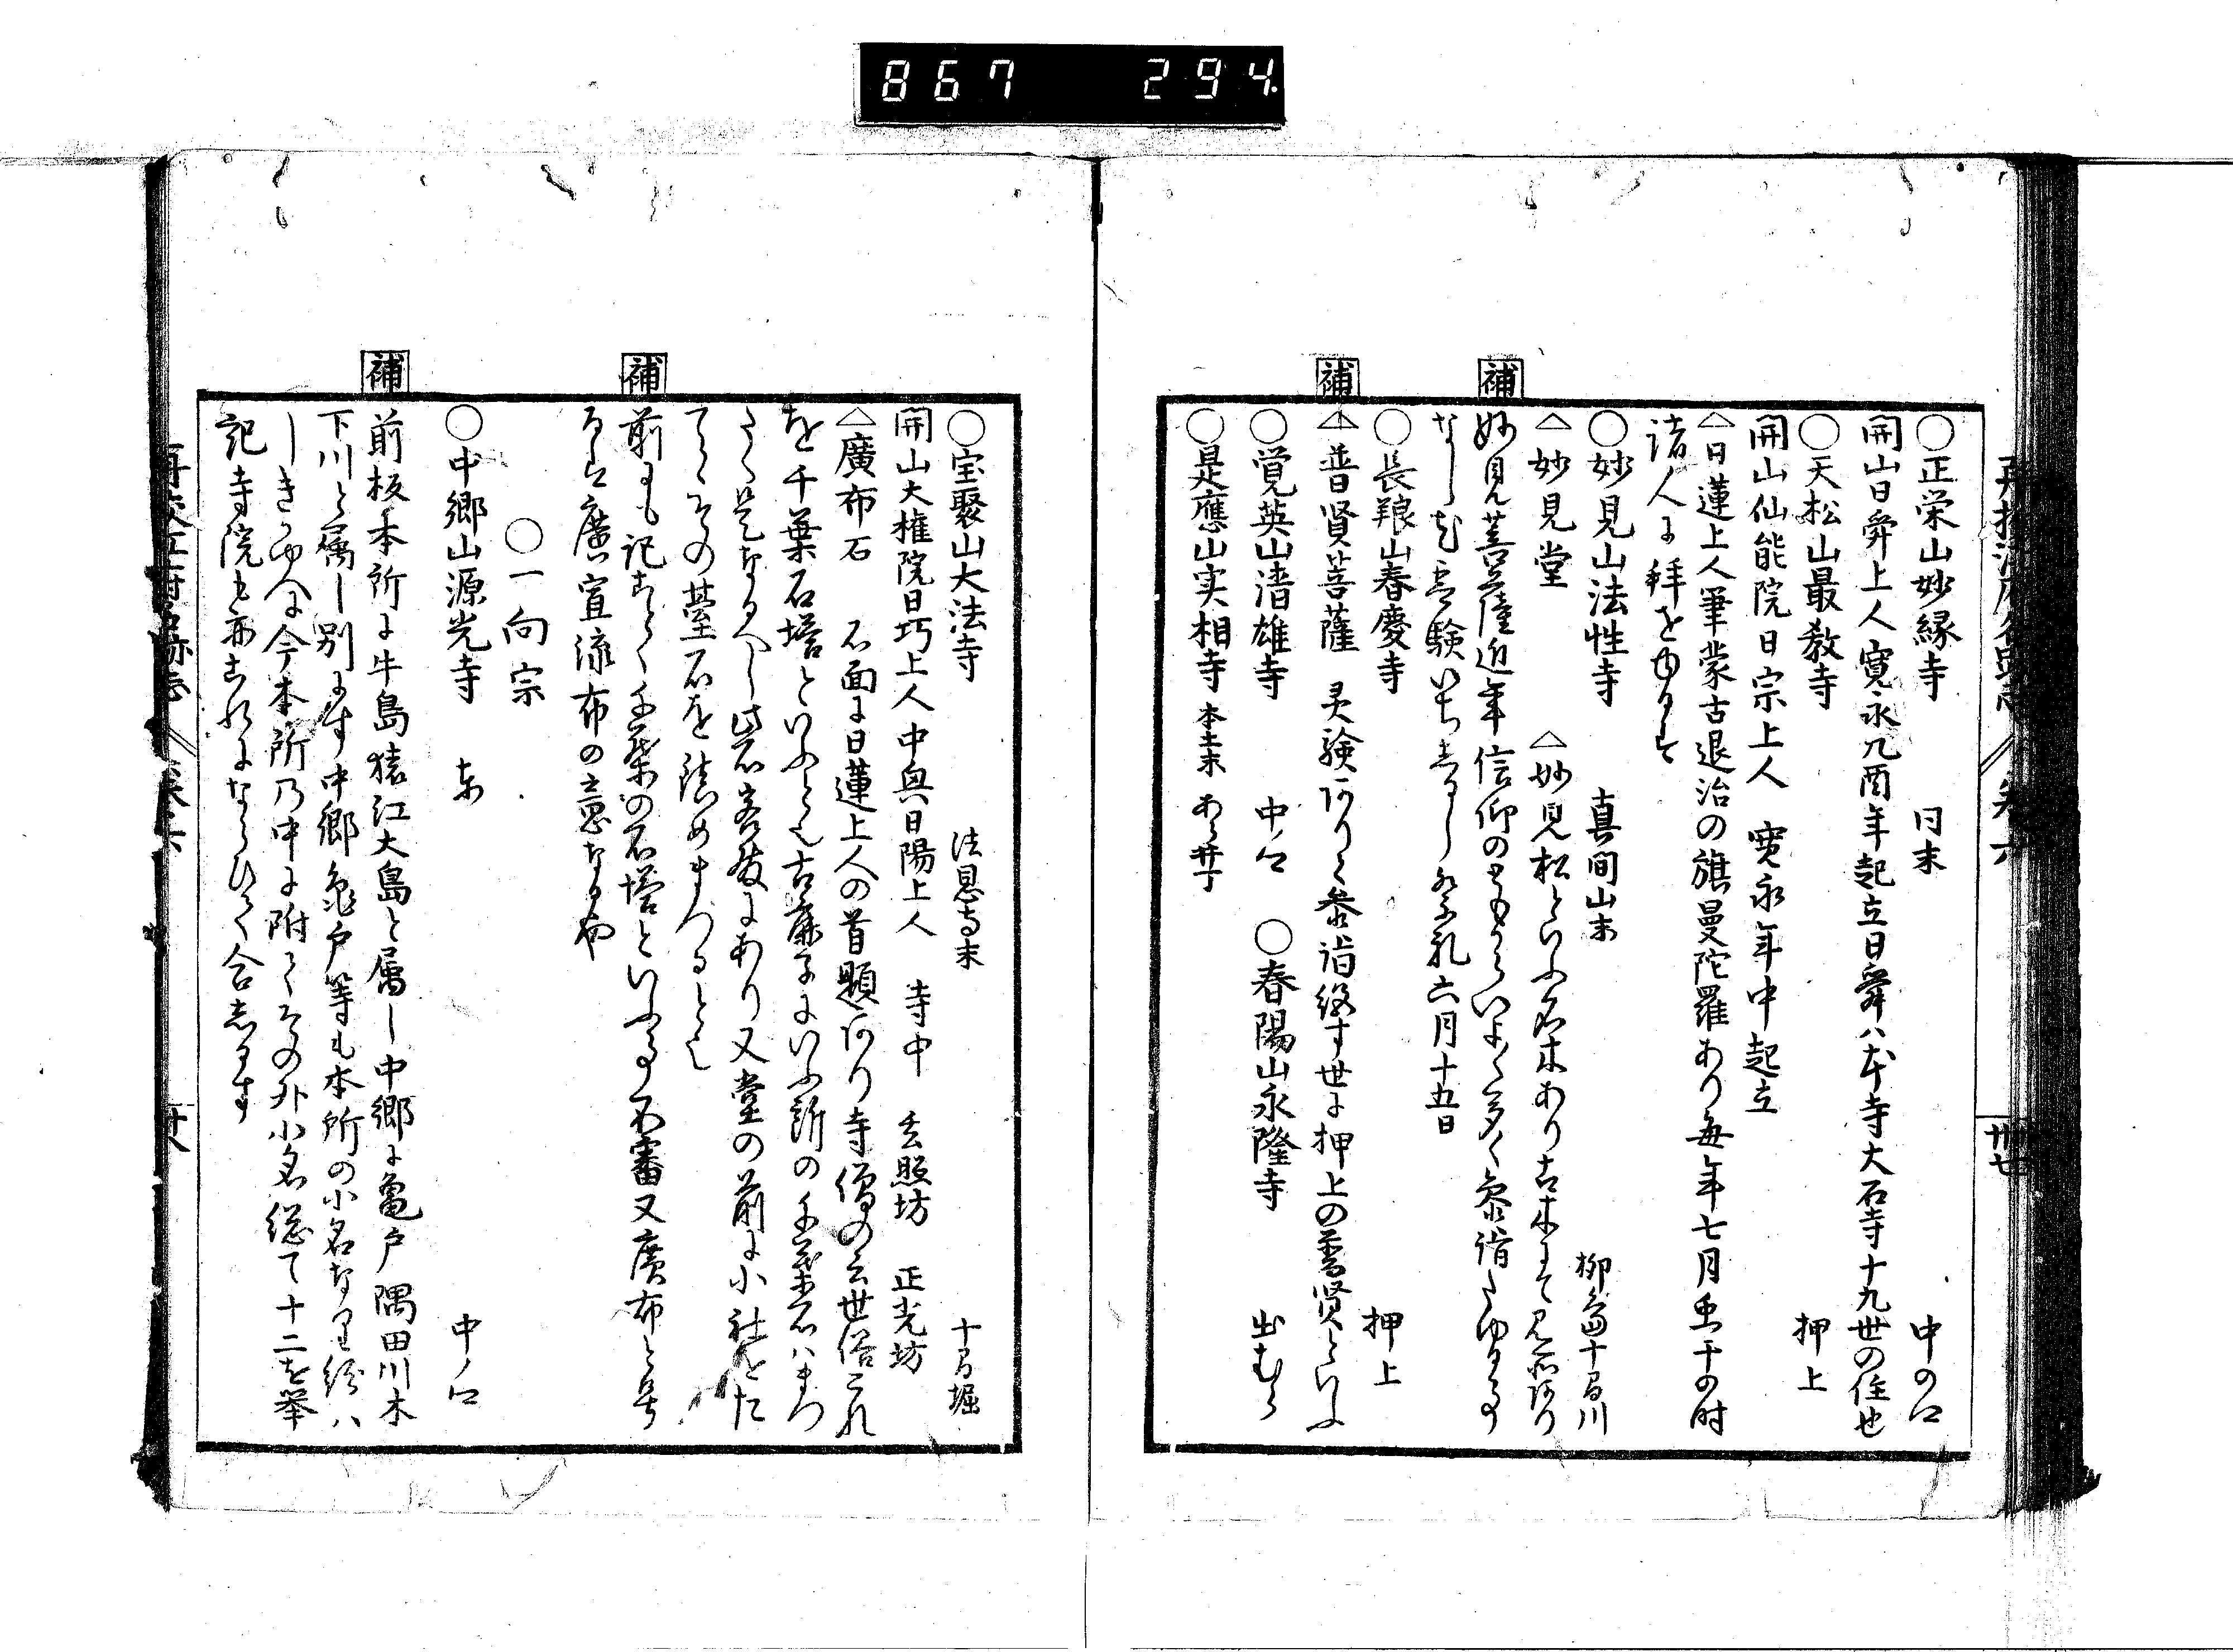 867 294
○正栄山妙縁寺 同末 中の口
開山日舜上人寛永九酉年起立日舜八本寺大石寺十九世の住也
○天松山最教寺 押上
開山仙能院日宗上人 寛永年中起立
△日蓮上人筆蒙古退治の旗曼陀羅あり毎年七月虫干の時
諸人に拝をゆるす
○妙見山法性寺 真間山末 柳島十間川
△妙見堂 △妙見松といふ名木あり古木にて見所あり
補 妙見菩薩近年信仰のともからいよ〱多く参詣たゆる事
なし尤霊験いちしるし祭礼六月十五日
○長養山春慶寺 押上
補 △普賢菩薩 灵験ありて参詣絶す世に押上の普賢といふ
○覚英山清雄寺 中ノ口 ○春陽山永隆寺 出むら
○是應山実相寺 本土末 あら井丁
○宝聚山大法寺 法恩寺末 十間堀
開山大権院日巧上人中興日陽上人 寺中 玄照坊 正光坊
△廣布石 石面に日蓮上人の首題あり寺僧の云世俗これ
を千葉石塔といふとも古鹿子にいふ所の千葉石ハまつ
たく是なるへし此石客殿にあり又堂の前に小社をた
てゝその臺石を鎮めまつるとも
補 前にも記ことく千葉の石塔といふ事不審又廣布と号
るは廣宣流布の意なるや
○一向宗
○中郷山源光寺 東 中ノ口
補 前板本所に牛島猿江大島と属し中郷に亀戸隅田川木
下川と属し別にす中郷亀戸等も本所の小名なり後ハ
しきゆへに今本所乃中に附てその外小名総て十二を挙
記寺院も亦これにならひて合しるす